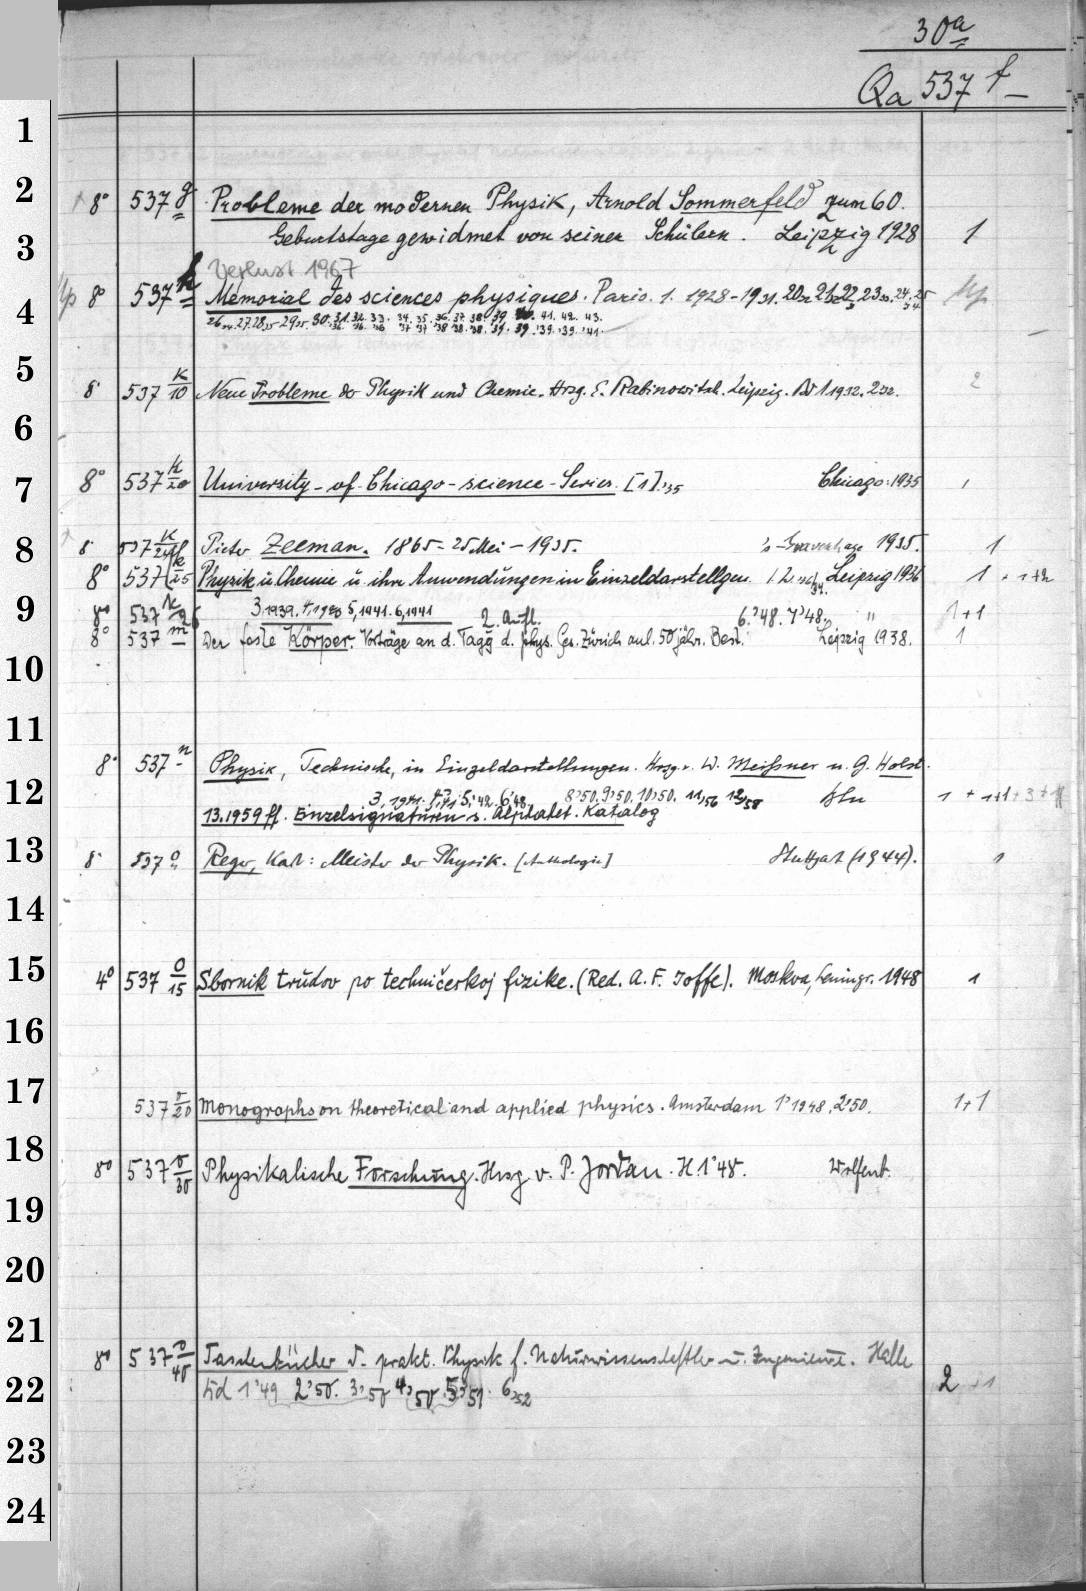 30a
Qa 537 f
1
2
8° 537 g Probleme der modernen Physik, Arnold Sommerfeld zum 60.
3
Geburtstage gewidmet von seinen Schülern. Leipzig 1928 1
Verlust 1967
4
8° 537 h Mémorial des sciences physiques. Paris. 1. 1928-1931. 20 21 22 23 24 25
5
8° 537 k/10 Neue Probleme der Physik und Chemie. Hrsg. E. Rabinowitsch. Leipzig. Bd 1 1932. 2 32. 2
6
7
8° 537 k/20 University-of-Chicago-science-Series. [1] '35 Chicago: 1935 1
8
8° 537 k/24 Pieter Zeeman. 1865-25 Mei-1935. 's-Gravenhage 1935. 1
8° 537 k/25 Physik u. Chemie u. ihre Anwendungen in Einzeldarstellgen. 1. 2. Leipzig 1936 1 + 1+2
9
8° 537 k/26 3 1939. 4, 1940 5, 1941. 6, 1941 2. Aufl. 6.'48. 7'48. " 1+1
8° 537 m Der feste Körper. Vorträge an d. Tagg d. phys. Ges. Zürich anl. 50jähr. Best. Leipzig 1938. 1
10
11
8° 537 n Physik, Technische, in Einzeldarstellungen. Hrsg. v. W. Meißner u. G. Holst.
12
3, 1941. 5,'42. 6'48. 8'50. 9'50. 10'50. 11,56 12,58 Bln
13.1959 ff. Einzelsignaturen s. Alphabet. Katalog
13
8° 537 o Regv, Karl: Meister der Physik. [Anthologie] Stuttgart (1944). 1
14
15
4° 537 o/15 Sbornik trudov po techničeskoj fizike. (Red. A. F. Joffe). Moskva, Leningr. 1948 1
16
17
537 o/20 Monographs on theoretical and applied physics. Amsterdam 1'1948, 2'50. 1+1
18
8° 537 o/30 Physikalische Forschung. Hrsg v. P. Jordan. H 1'48. Wolfenb.
19
20
21
8° 537 o/40 Taschenbücher d. prakt. Physik f. Naturwissenschaftler u. Ingenieure. Halle
22
Bd 1'49 2'50. 3,50 4,50 5,51 6,52 2 +1
23
24